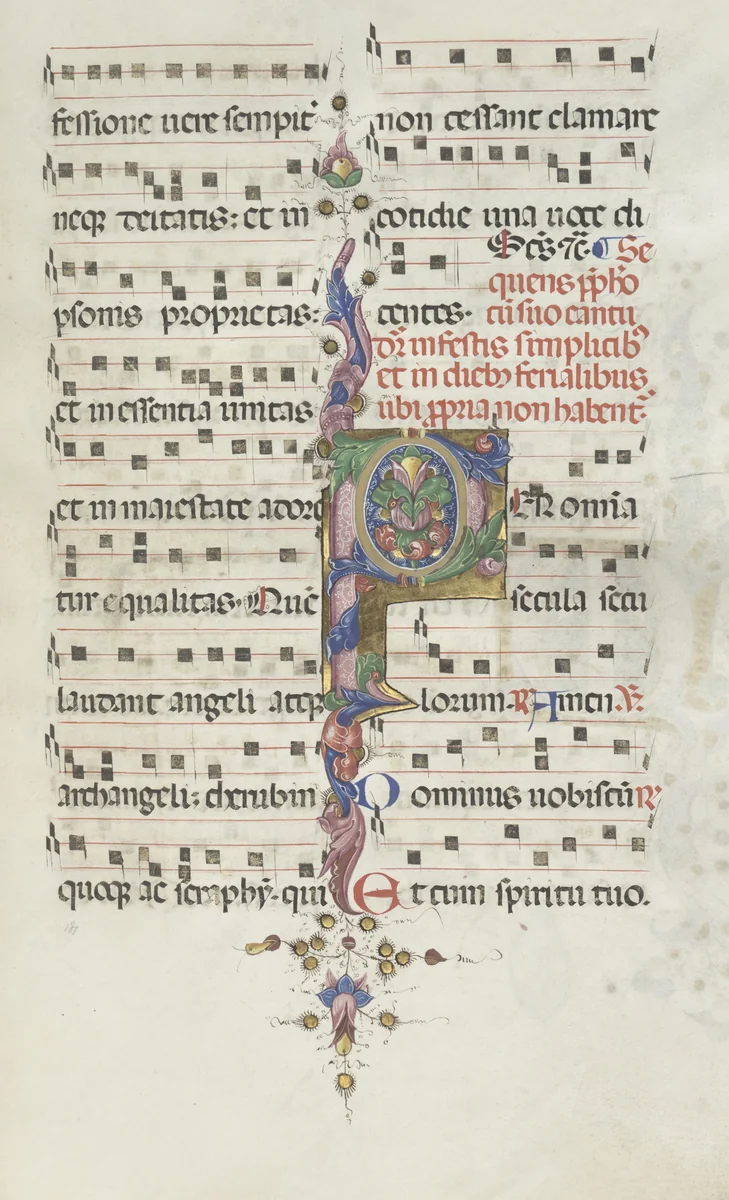 fessione uere sempit᷒
neqꝫ deitatis: et in
psonis proprietas:
et in essentia unitas
et in maiestate adore
tur equalitas. Quē
laudant angeli atqꝫ
archangeli: cherubin
quoqꝫ ac seraphỹ. qui
non cessant clamare
cotidie una uoce di
centes.
Sc̄s ⁊c̄. Se
quens p̄pho
cū suo cantu
in festis simplicib⁹
et in dieb⁊ ferialibus
ubi ꝓpria non habent᷒
PER omīa
secula secu
lorum. ℟ Amen ℣
Dominus uobiscū ℟
Et cum spiritu tuo.